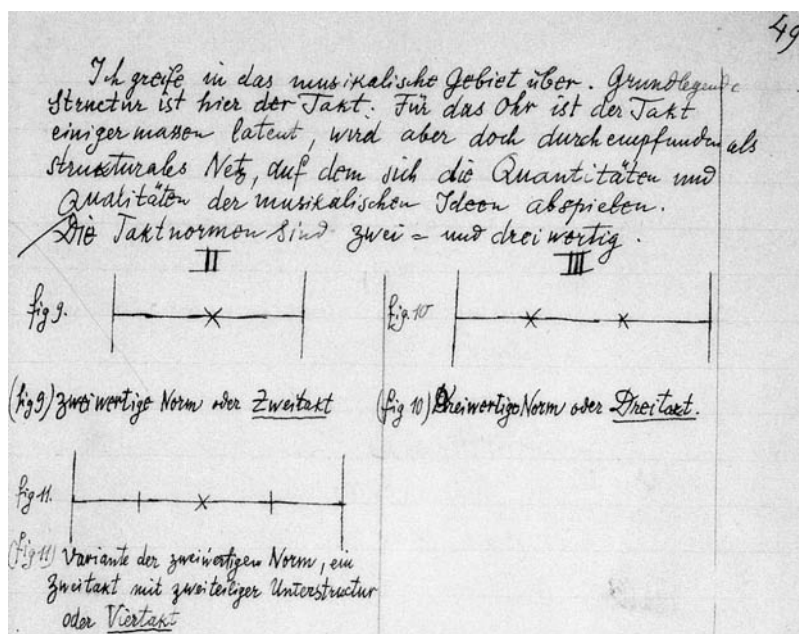 49
Ich greife in das musikalische Gebiet über. Grundlegende
Structur ist hier der Takt. Für das Ohr ist der Takt
einigermassen latent, wird aber doch durchempfunden als
strukturales Netz, auf dem sich die Quantitäten und
Qualitäten der musikalischen Ideen abspielen.
Die Taktnormen sind zwei = und dreiwertig.
II III
fig 9. fig. 10
(fig 9) zweiwertige Norm oder Zweitakt (fig 10) Dreiwertige Norm oder Dreitakt.
fig 11.
(fig 11) Variante der zweiwertigen Norm, ein
Zweitakt mit zweiteiliger Unterstructur
oder Viertakt